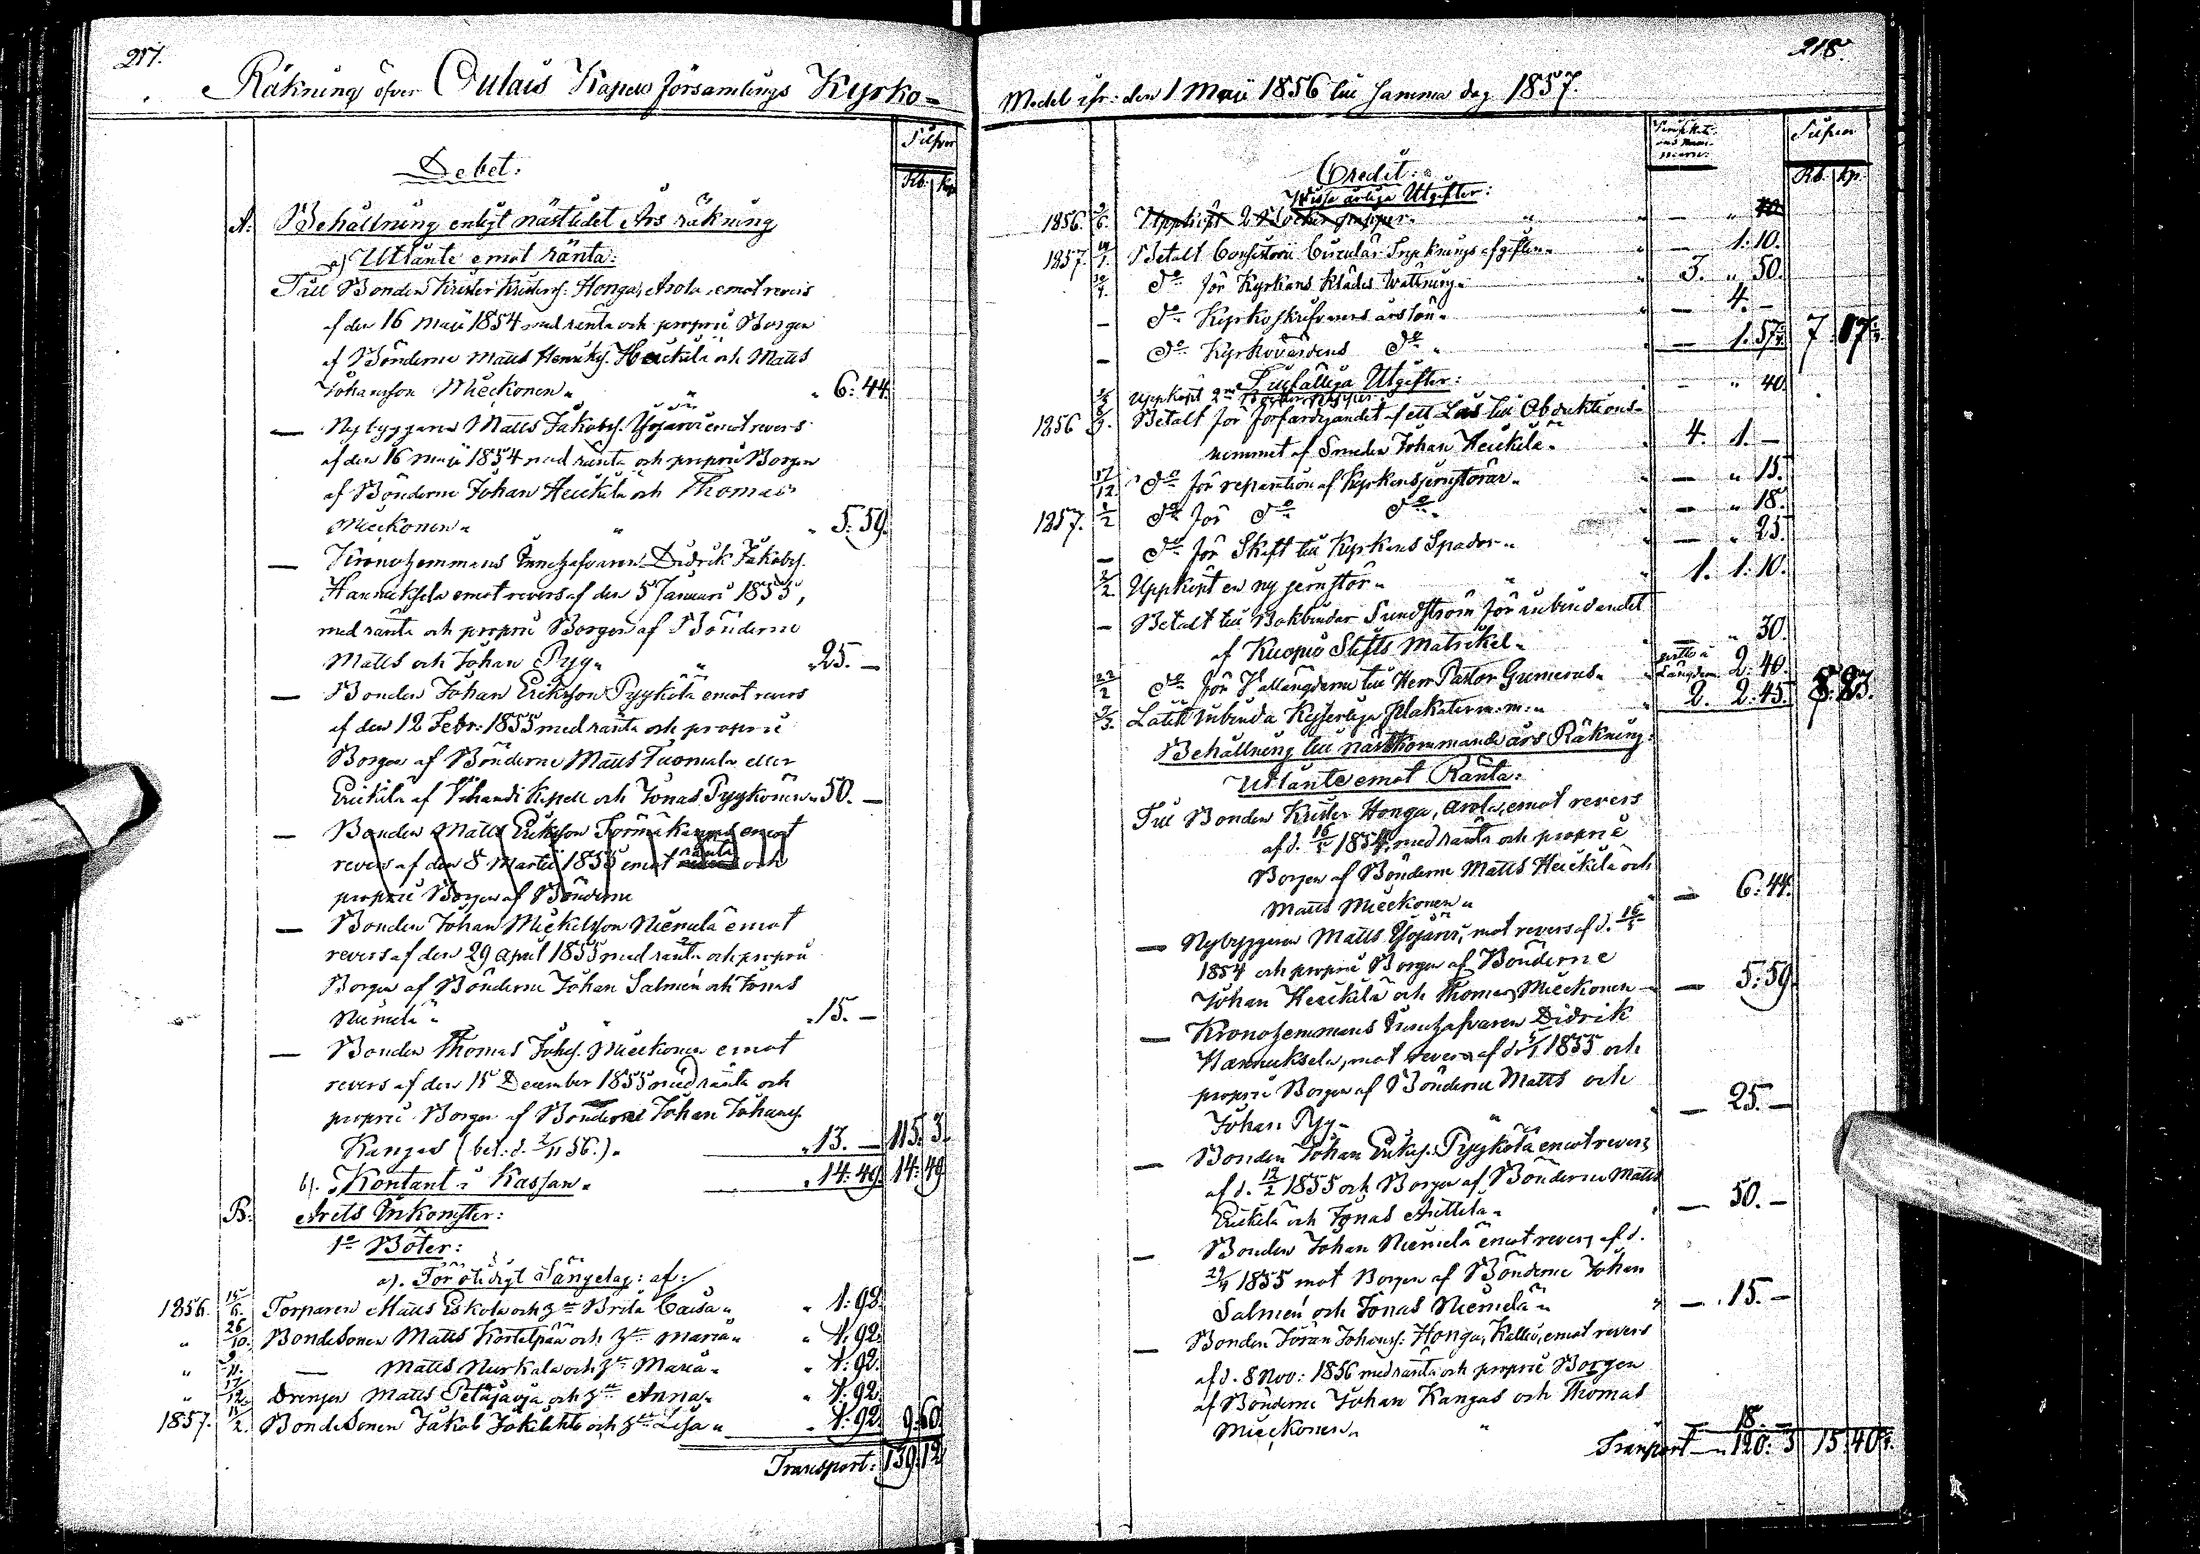 217.
Räkning öfver Oulais Kapell församlings Kyrko-
Silfver
Debet:
Rb. Kp.
A. Behållning enligt nästledet Års räkning
a) Utlånte emot ränta:
Till Bonden Krister Kristers. Honga, Arola, emot revers
af den 16 Maji 1854 med ränta och proprie Borgen
af Bönderne Matts Henriks. Heickilä och Matts
Johansson Mieckonen " " " 6:44.
— Nybyggaren Matts Jakobs. Yöjärvi emot revers
af den 16 Maji 1854 med ränta och proprie Borgen
af Bönderne Johan Heickilä och Thomas
Mieckonen " " " 5:59.
— Kronohemmans Innehafvaren Didrik Jakobs.
Hannuksela emot revers af den 5 Januari 1855,
med ränta och proprie Borgen af Bönderne
Matts och Johan Pyy " " " 25. —
— Bonden Johan Eriksson Pyykölä emot revers
af den 12 Febr: 1855 med ränta och proprie
Borgen af Bönderne Matts Tuomala eller
Erickilä af Vihandi Kapell och Jonas Pyykönen " 50. —
— Bonden Matts Eriksson Törmäkangas emot
revers af den 8 Martii 1855 emot ränta och
proprie Borgen af Bönderne
— Bonden Johan Mickelsson Niemelä emot
revers af den 29 April 1855 med ränta och proprie
Borgen af Bönderne Johan Salmén och Jonas
Niemelä " " " 15. —
— Bonden Thomas Johs. Mieckonen emot
revers af den 15 December 1855 med ränta och
proprie Borgen af Bönderne Johan Johans.
Kangas (bet. d. 2/11 56.) " " 13. — 115. 3.
b). Kontant i Kassan " " 14:49. 14:49
B. Årets Inkomster:
1o Böter:
a). För otidigt Sängelag: af:
1856. 15/6. Torparen Matts Eskola och hu Brita Caisa " " 1:92.
" 26/10. Bondesonen Matts Kortelpää och hu Maria " " 1:92.
" 9/11. — Matts Nurkala och hu Maria " " 1:92.
" 17/12. Drengen Matts Petäjäoja och hu Anna " " 1:92.
1857. /2. Bondesonen Jakob Jokilehto och hu Lisa " " 1:92. 9:60.
Transport: 139:12
218.
Medel ifr: den 1 Maji 1856 till samma dag 1857.
Silfver
Credit:
Rb. Kp.
Wissa årliga Utgifter:
1856. /6. Uppköpt 2 Böcker papper " " " — " 40
1857. /1. Betalt Consistorii Circulär Tryckningsafgiften " " — 1:10.
/1. do för Kyrkans kläders tvättning " " 3. " 50.
— do Kyrkoskrifvarens årslön " " 4. —
— do Kyrkovärdens do " " — 1.57½ 7:07½
Tillfälliga Utgifter:
Uppköpt 2ne Böcker papper " — " 40
1856 /9. Betalt för förfärdigandet af ett Lås till Obduktions-
rummet af Smeden Johan Heickilä " " 4. 1. —
17/12. do för reparation af Kyrkans jernstörar " " — " 15.
1857. 1/2 do för do do " " — " 18.
— do för Skaft till Kyrkans Spador " " — " 25
2/2 Uppköpt en ny jernstör " " " 1. 1:10.
— Betalt till Bokbindar Sundström för inbindandet
af Kuopio Stifts Matrikel " " — " 30.
22/2 do för Vallängderne till Herr Pastor Gummerus " 2:40
/3. Låtit inbinda Kejserliga plakater m.m. " " 2. 2:45. 8:23.
Behållning till nästkommande års Räkning:
Utlånte emot Ränta:
Till Bonden Krister Honga, Arola, emot revers
af d. 16/5 1854, med ränta och proprie
Borgen af Bönderne Matts Heickilä och
Matts Mieckonen " " — 6:44.
— Nybyggaren Matts Yöjärvi, mot revers af d. 16/5
1854 och proprie Borgen af Bönderne
Johan Heickilä och Thomas Mieckonen — 5:59.
— Kronohemmans Innehafvaren Didrik
Hannuksela, mot revers af d. 5/1 1855 och
proprie Borgen af Bönderne Matts och
Johan Pyy " " — 25. —
— Bonden Johan Eriks. Pyykölä emot revers
af d. 12/2 1855 och Borgen af Bönderne Matts
Erickilä och Jonas Anttila " " — 50. —
— Bonden Johan Niemelä emot revers af d.
29/4 1855 mot Borgen af Bönderne Johan
Salmén och Jonas Niemelä " " — 15. —
— Bonden Jöran Johans: Honga, Kellu, emot revers
af d. 8 Nov: 1856 med ränta och proprie Borgen
af Bönderne Johan Kangas och Thomas
Mieckonen " " — 18. —
Transport — " 120:3 15:40½.